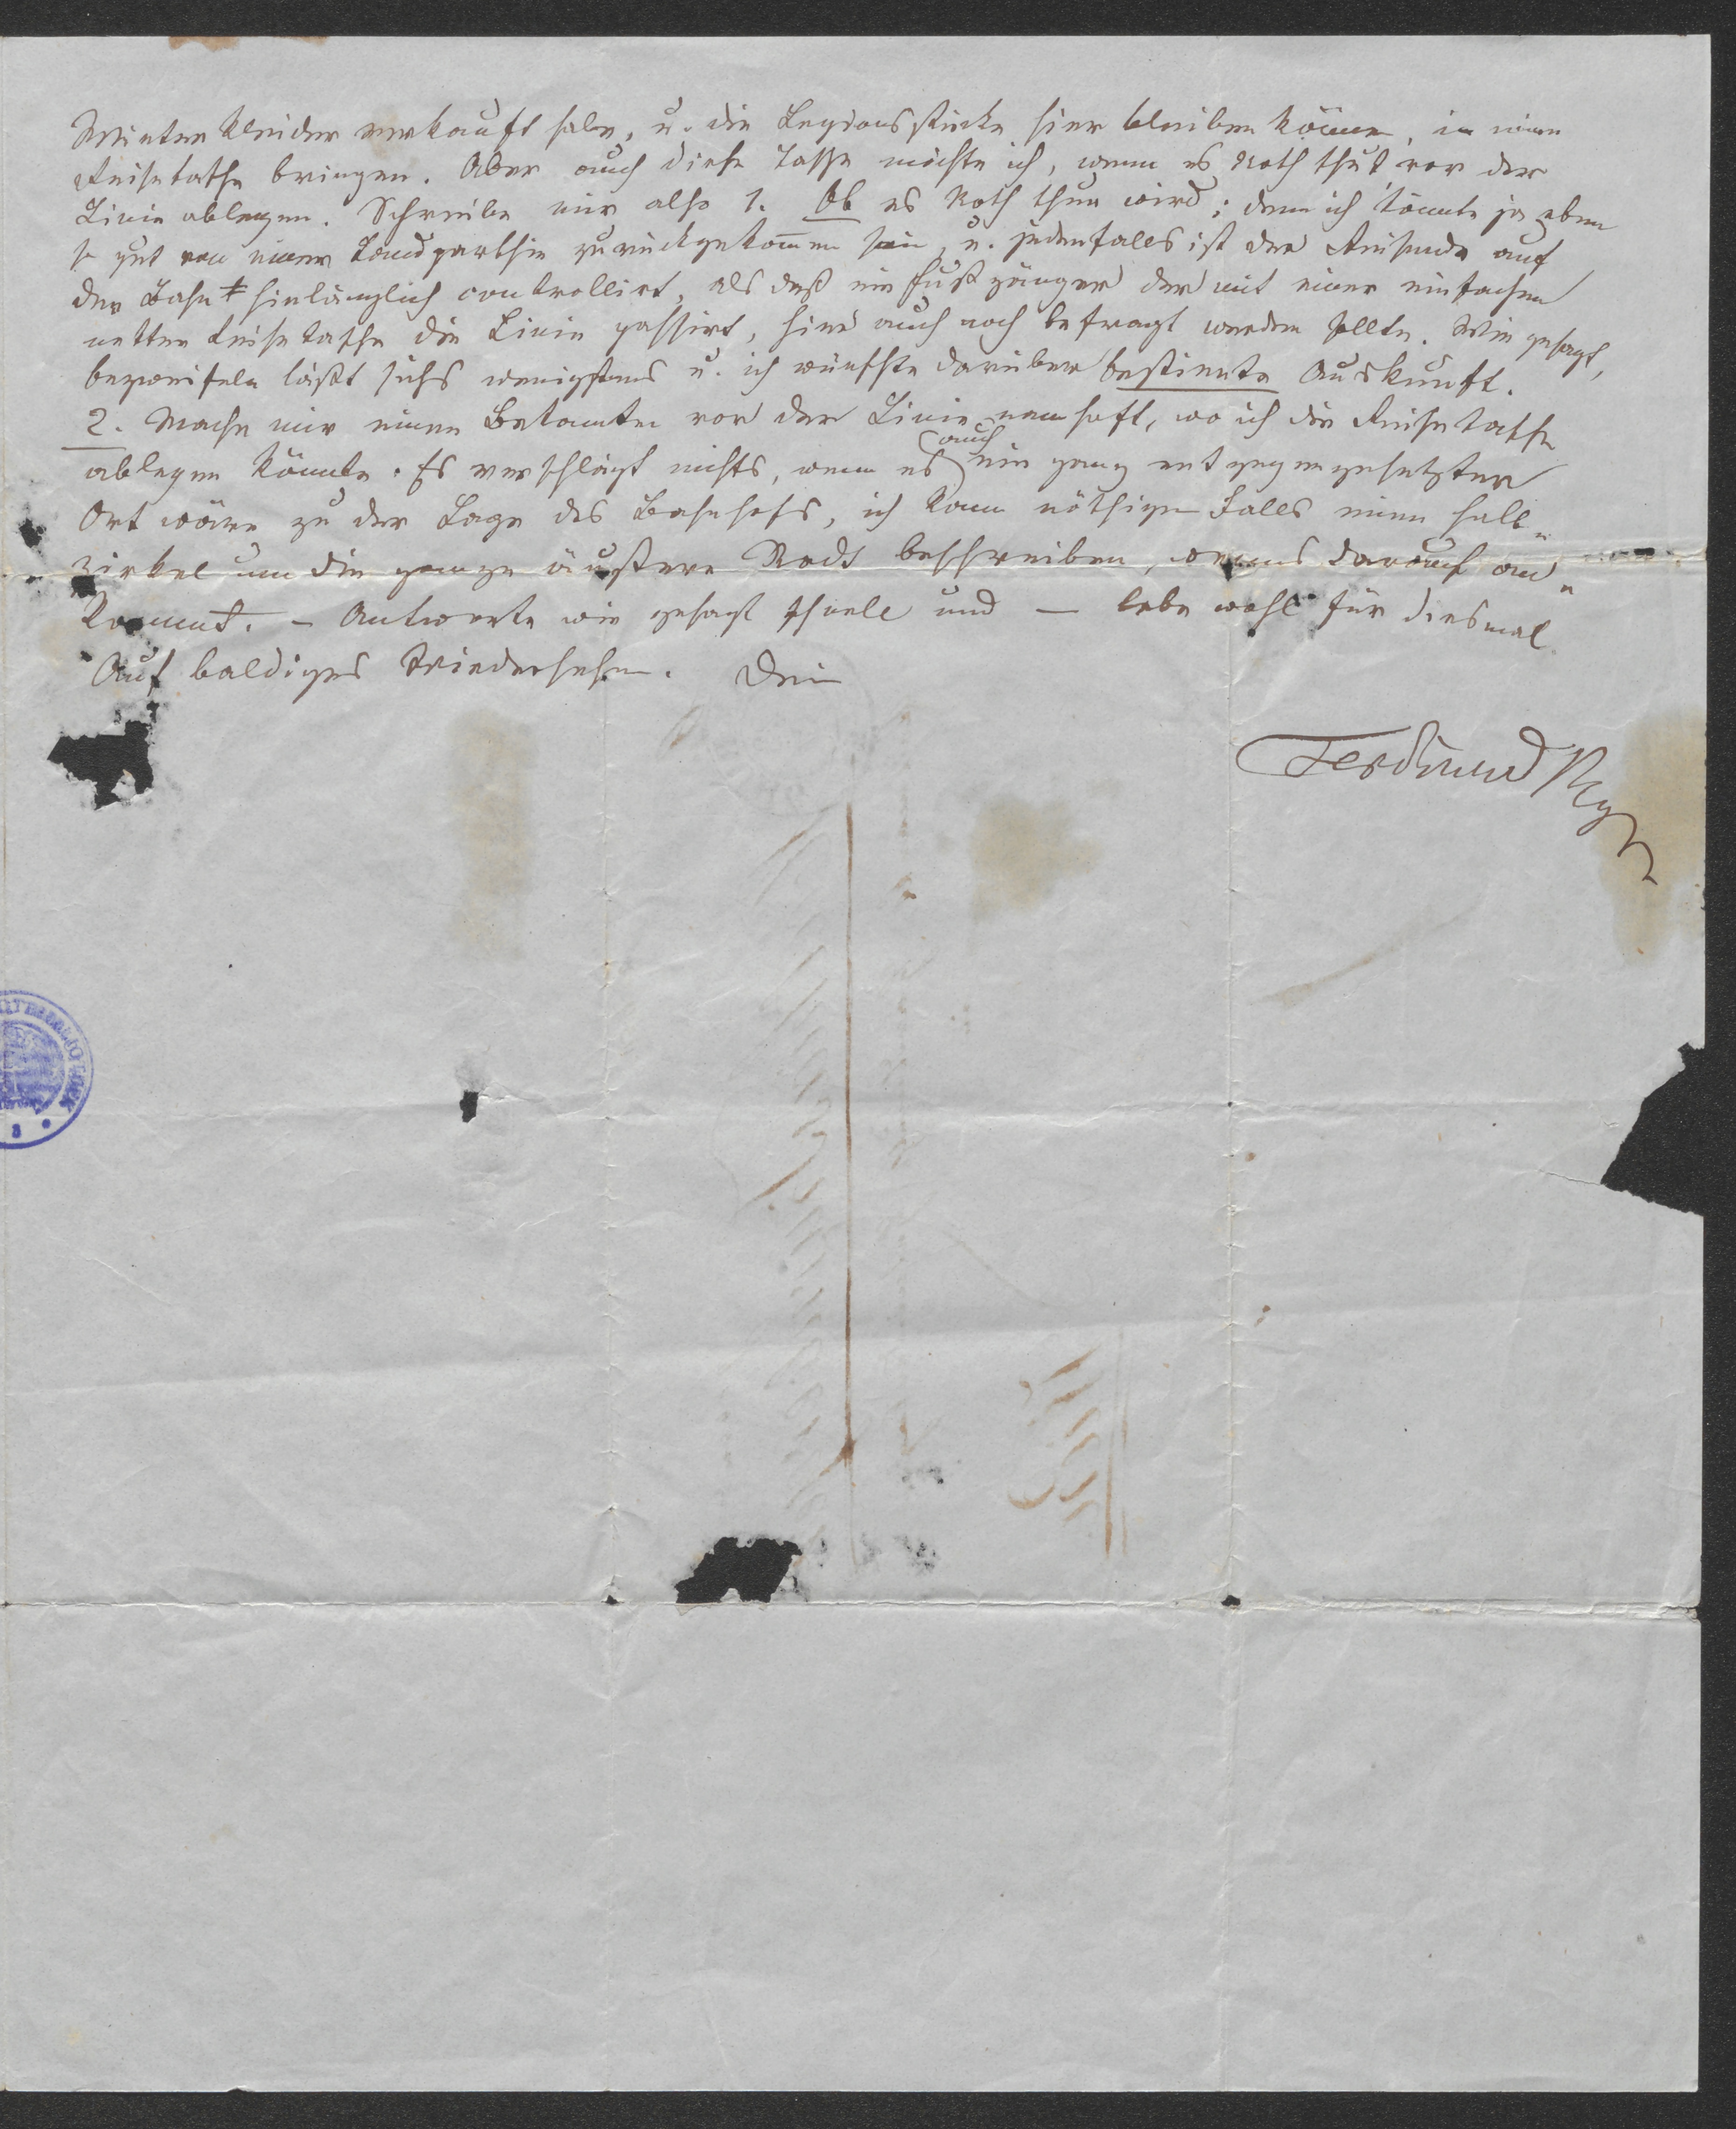 Winterkleider verkauft habe, u. die Legionsstücke hier bleiben können, in einer
Reisetasche bringen. Aber auch diese Tasche möchte ich, wenn es Noth thut vor der
Linie ablegen. Schreibe mir also 1. Ob es Noth thun wird; denn ich könnte ja eben
so gut von einer Landparthie zurückgekom̅en sein, u. jedenfalls ist der Reisende auf
der Bahn hinlänglich controllirt, als daß ein Fußgänger der mit einer einfachen
netten Reisetasche die Linie passirt, hier auch noch befragt werden sollte. Wie gesagt,
bezweifeln läßt sichs wenigstens u. ich wünschte darüber bestimmte Auskunft.
2. Mache mir einen Bekannten vor der Linie namhaft, wo ich die Reisetasche
ablegen könnte. Es verschlägt nichts, wenn es auch ein ganz entgegengesetzter
Ort wäre zu der Lage des Bahnhofs, ich kann nöthigen Falls einen Halb-
zirkel um die ganze äußere Stadt beschreiben, wenns darauf an-
kommt. – Antworte wie gesagt schnell und – lebe wohl für diesmal
Auf baldiges Wiedersehen. Dein
Ferdinand